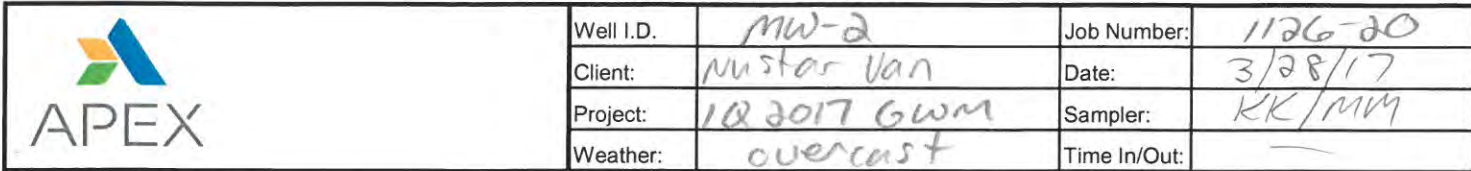 Well I.D. MW-2 Job Number: 1126-20
Client: Nustar Van Date: 3/28/17
Project: 1Q 2017 GWM Sampler: KK/MM
Weather: overcast Time In/Out: —
APEX